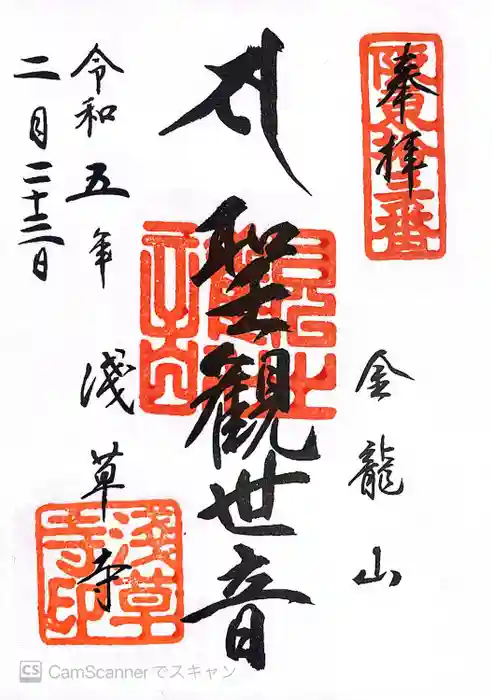 奉拝
金龍山
聖觀世音
令和五年
二月二十三日
淺草寺
淺草寺印
CS CamScannerでスキャン